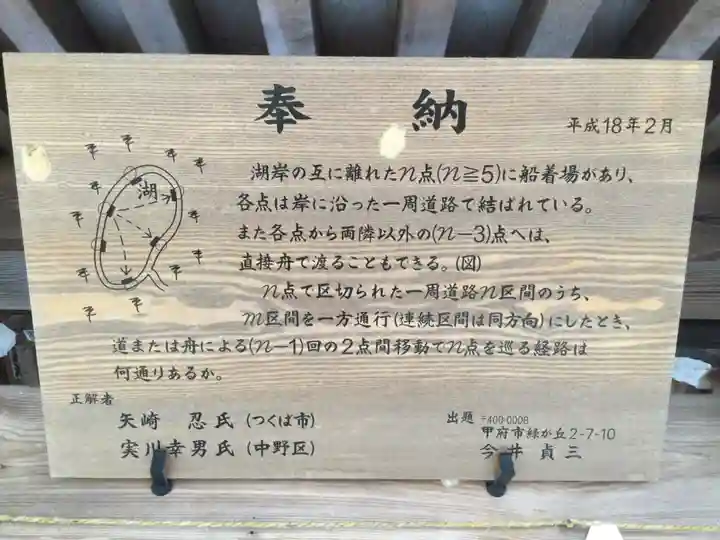 奉納
平成18年2月
湖
湖岸の互に離れたn点(n≧5)に船着場があり、
各点は岸に沿った一周道路で結ばれている。
また各点から両隣以外の(n−3)点へは、
直接舟で渡ることもできる。(図)
n点で区切られた一周道路n区間のうち、
m区間を一方通行(連続区間は同方向)にしたとき、
道または舟による(n−1)回の2点間移動でn点を巡る経路は
何通りあるか。
正解者
矢崎 忍氏(つくば市)
実川幸男氏(中野区)
出題 〒400-0008
甲府市緑が丘2-7-10
今井貞三